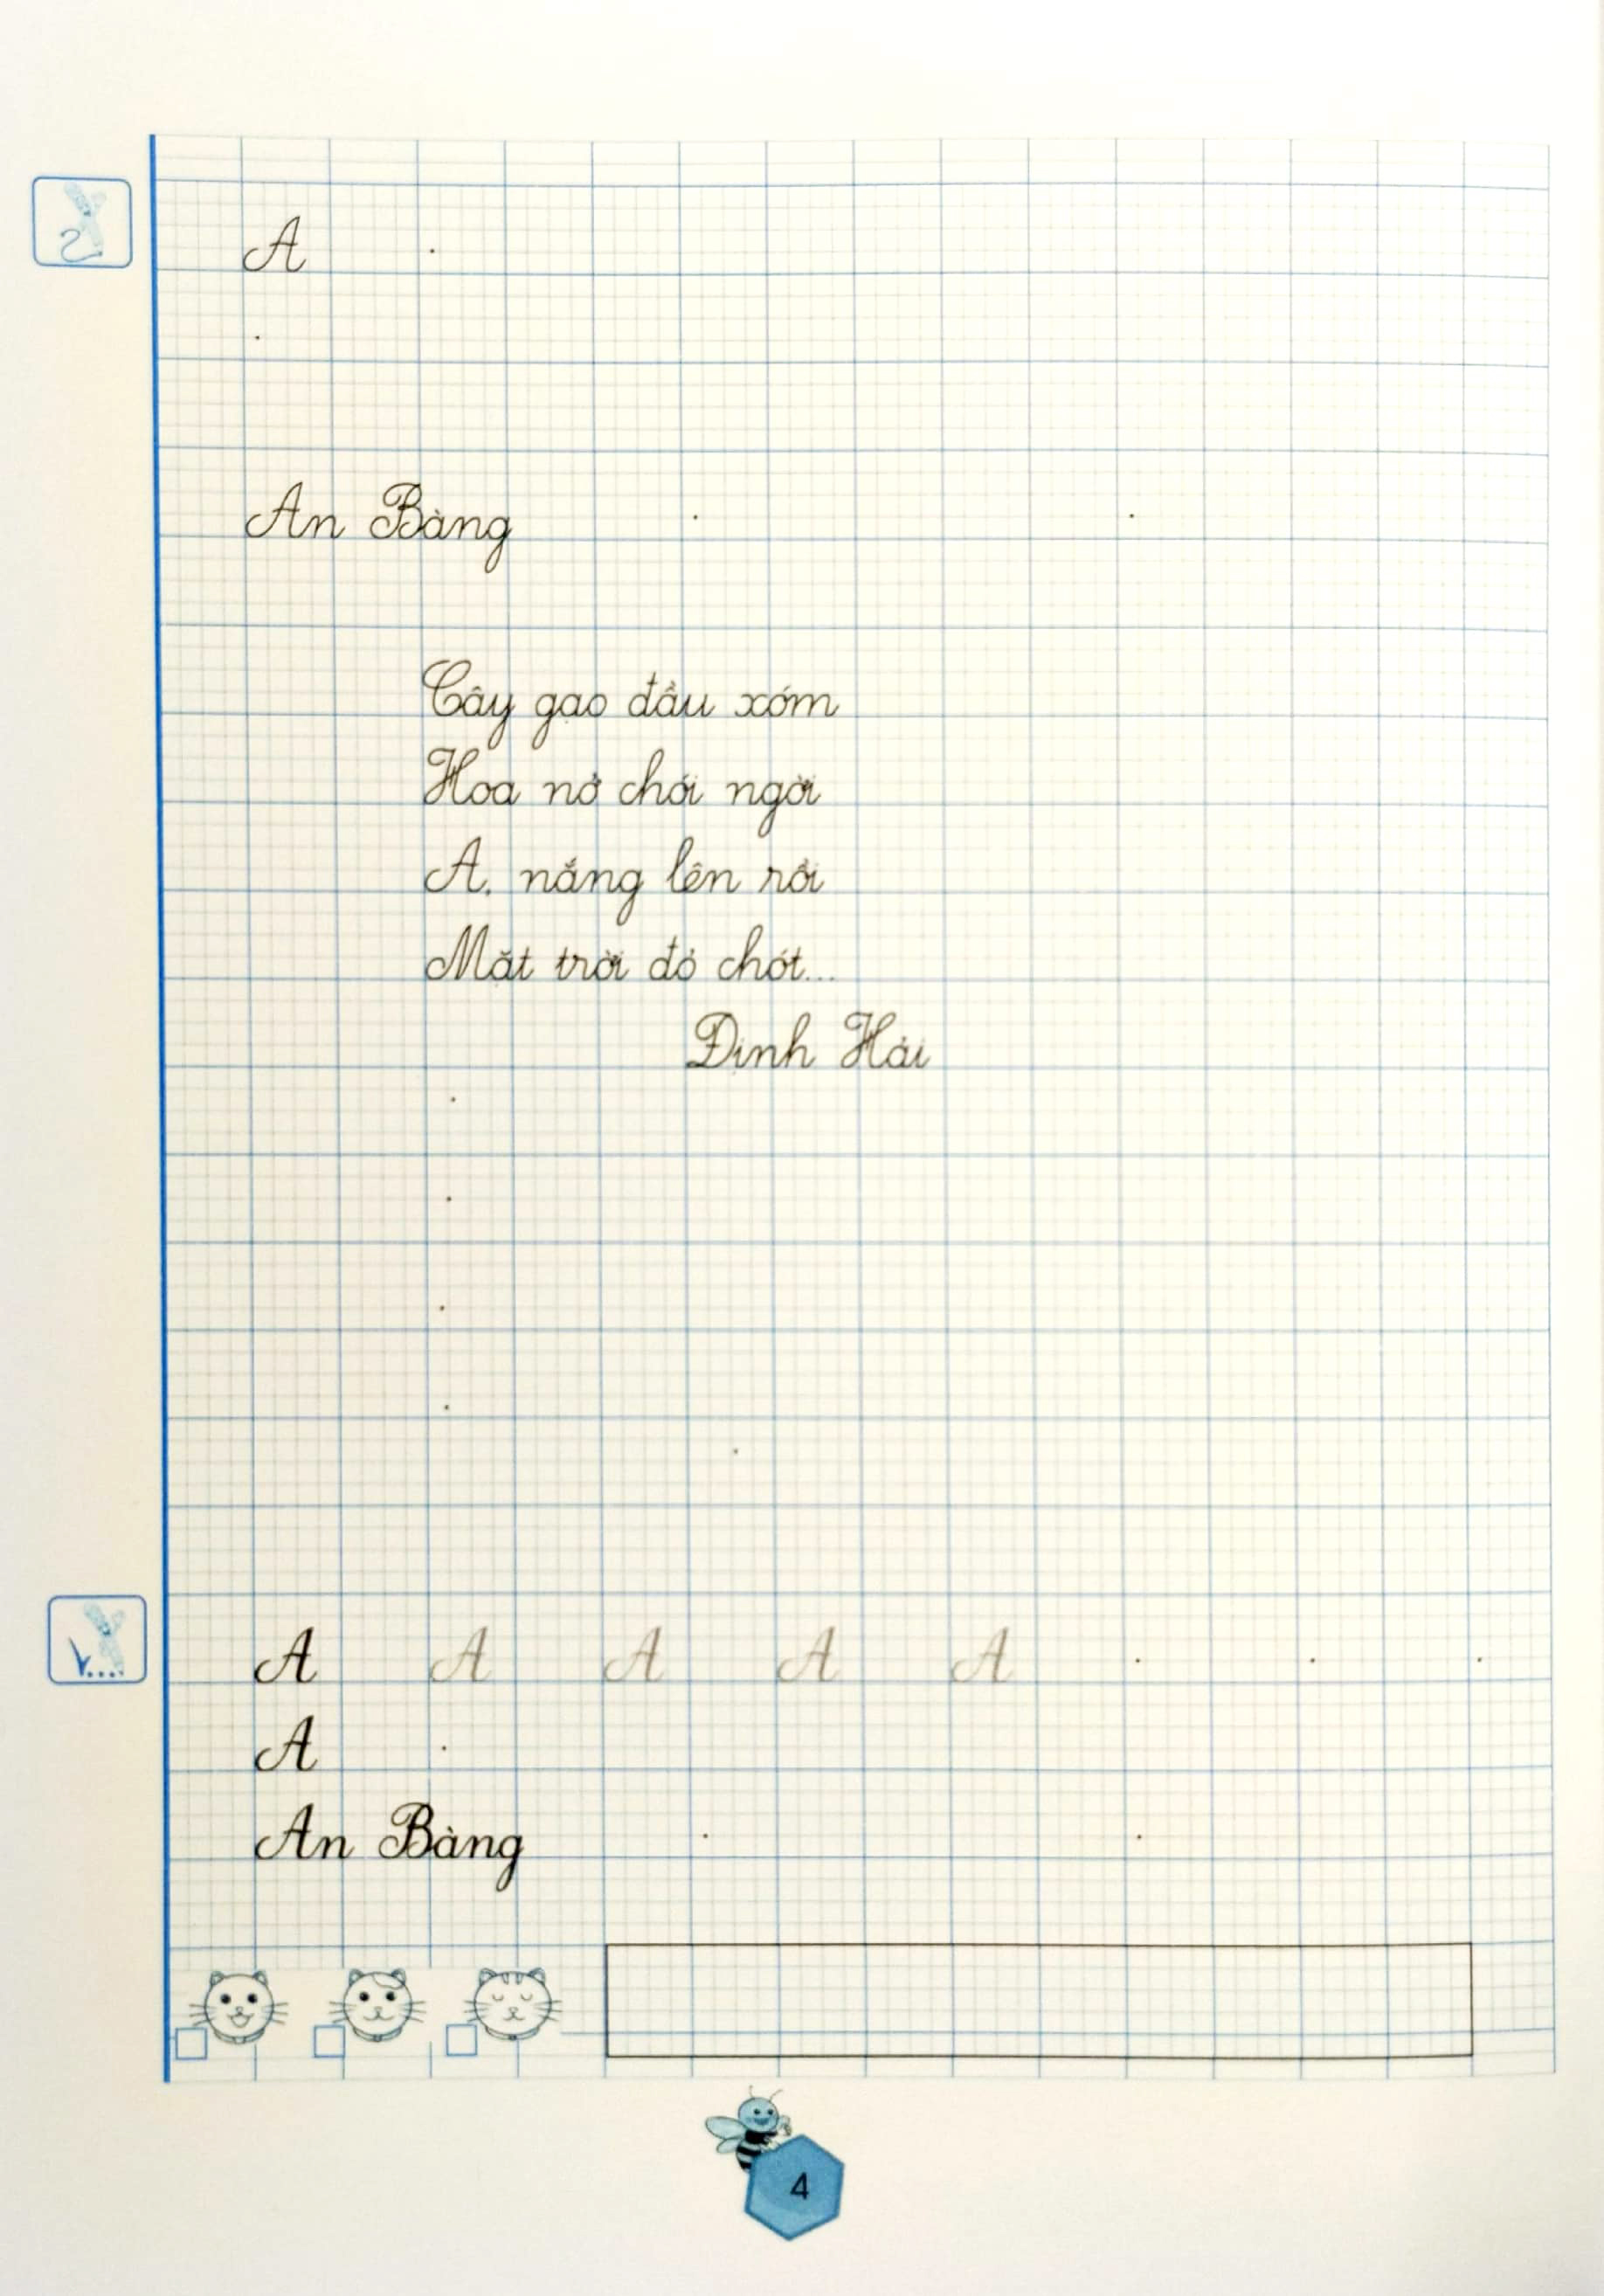 A
An Bàng
Cây gạo đầu xóm
Hoa nở chói ngời
A, nắng lên rồi
Mặt trời đỏ chót...
Định Hải
A A A A A
A
An Bàng
4